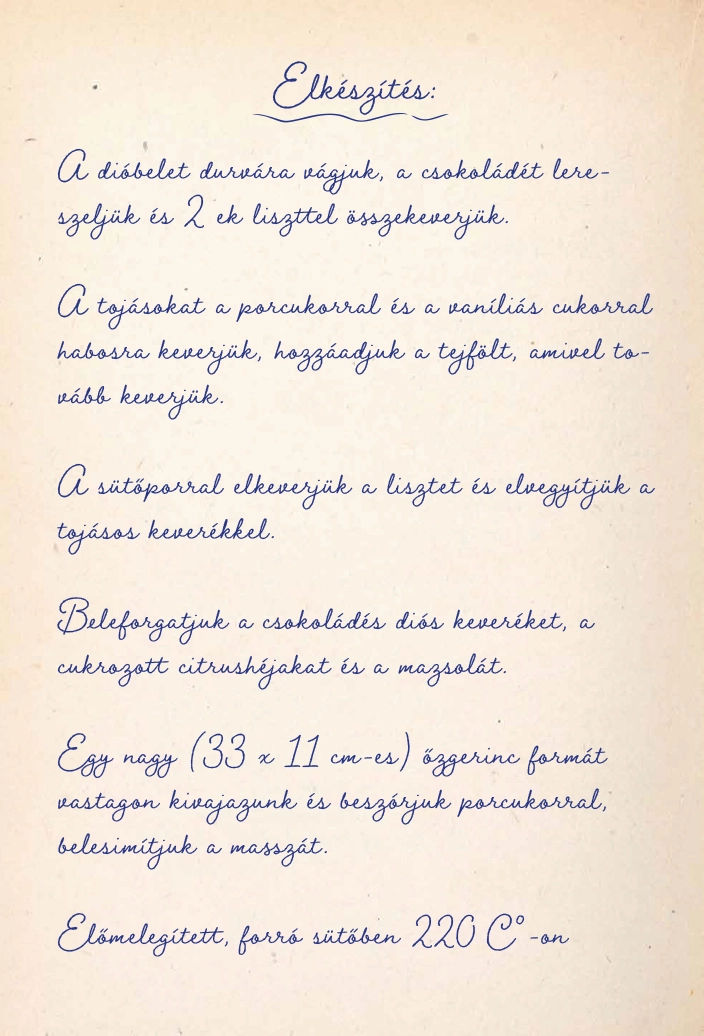 Elkészítés:
A dióbelet durvára vágjuk, a csokoládét lere-
szeljük és 2 ek liszttel összekeverjük.
A tojásokat a porcukorral és a vaníliás cukorral
habosra keverjük, hozzáadjuk a tejfölt, amivel to-
vább keverjük.
A sütőporral elkeverjük a lisztet és elvegyítjük a
tojásos keverékkel.
Beleforgatjuk a csokoládés diós keveréket, a
cukrozott citrushéjakat és a mazsolát.
Egy nagy (33 x 11 cm-es) őzgerinc formát
vastagon kivajazunk és beszórjuk porcukorral,
belesimítjuk a masszát.
Előmelegített, forró sütőben 220 C°-on